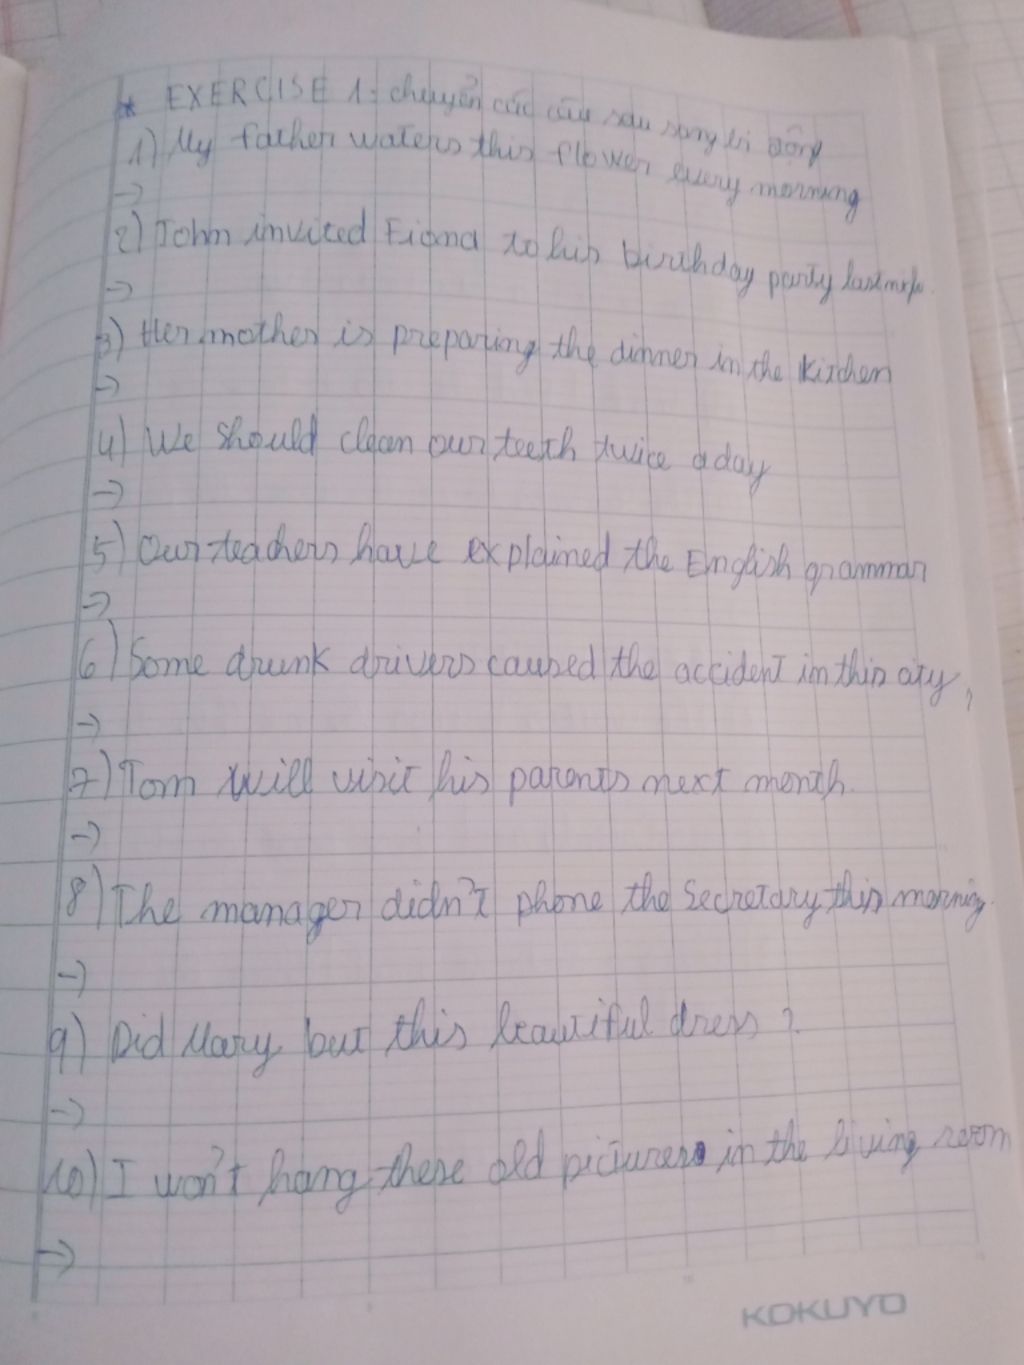 * EXERCISE 1: chuyển các câu sau sang bị động
1) My father waters this flower every morning
->
2) John invited Fiona to his birthday party last night.
->
3) Her mother is preparing the dinner in the kitchen
->
4) We should clean our teeth twice a day
->
5) Our teachers have explained the English grammar
->
6) Some drunk drivers caused the accident in this city,
->
7) Tom will visit his parents next month.
->
8) The manager didn't phone the secretary this morning.
->
9) Did Mary but this beautiful dress?
->
10) I won't hang these old pictures in the living room
->
KOKUYO